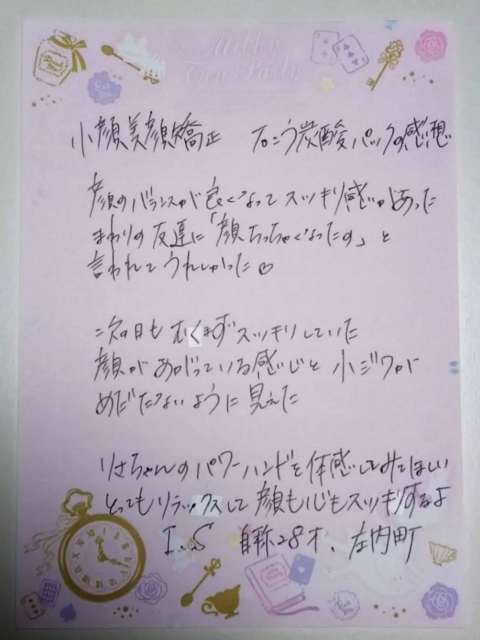 Milky
Tea Party
小顔美顔矯正 プロニうう炭酸パックの感想
顔のバランスが良くなってスッキリ感があった
まわりの友達に「顔ちっちゃくなったの」と
言われてうれしかった♡
次の日もむくまずスッキリしていた
顔があがっている感じと小ジワが
めだたないように見えた
りさちゃんのパワーハンドを体感してみてほしい
とってもリラックスして顔も心もスッキリするよ
I.S 自称28才、左内町